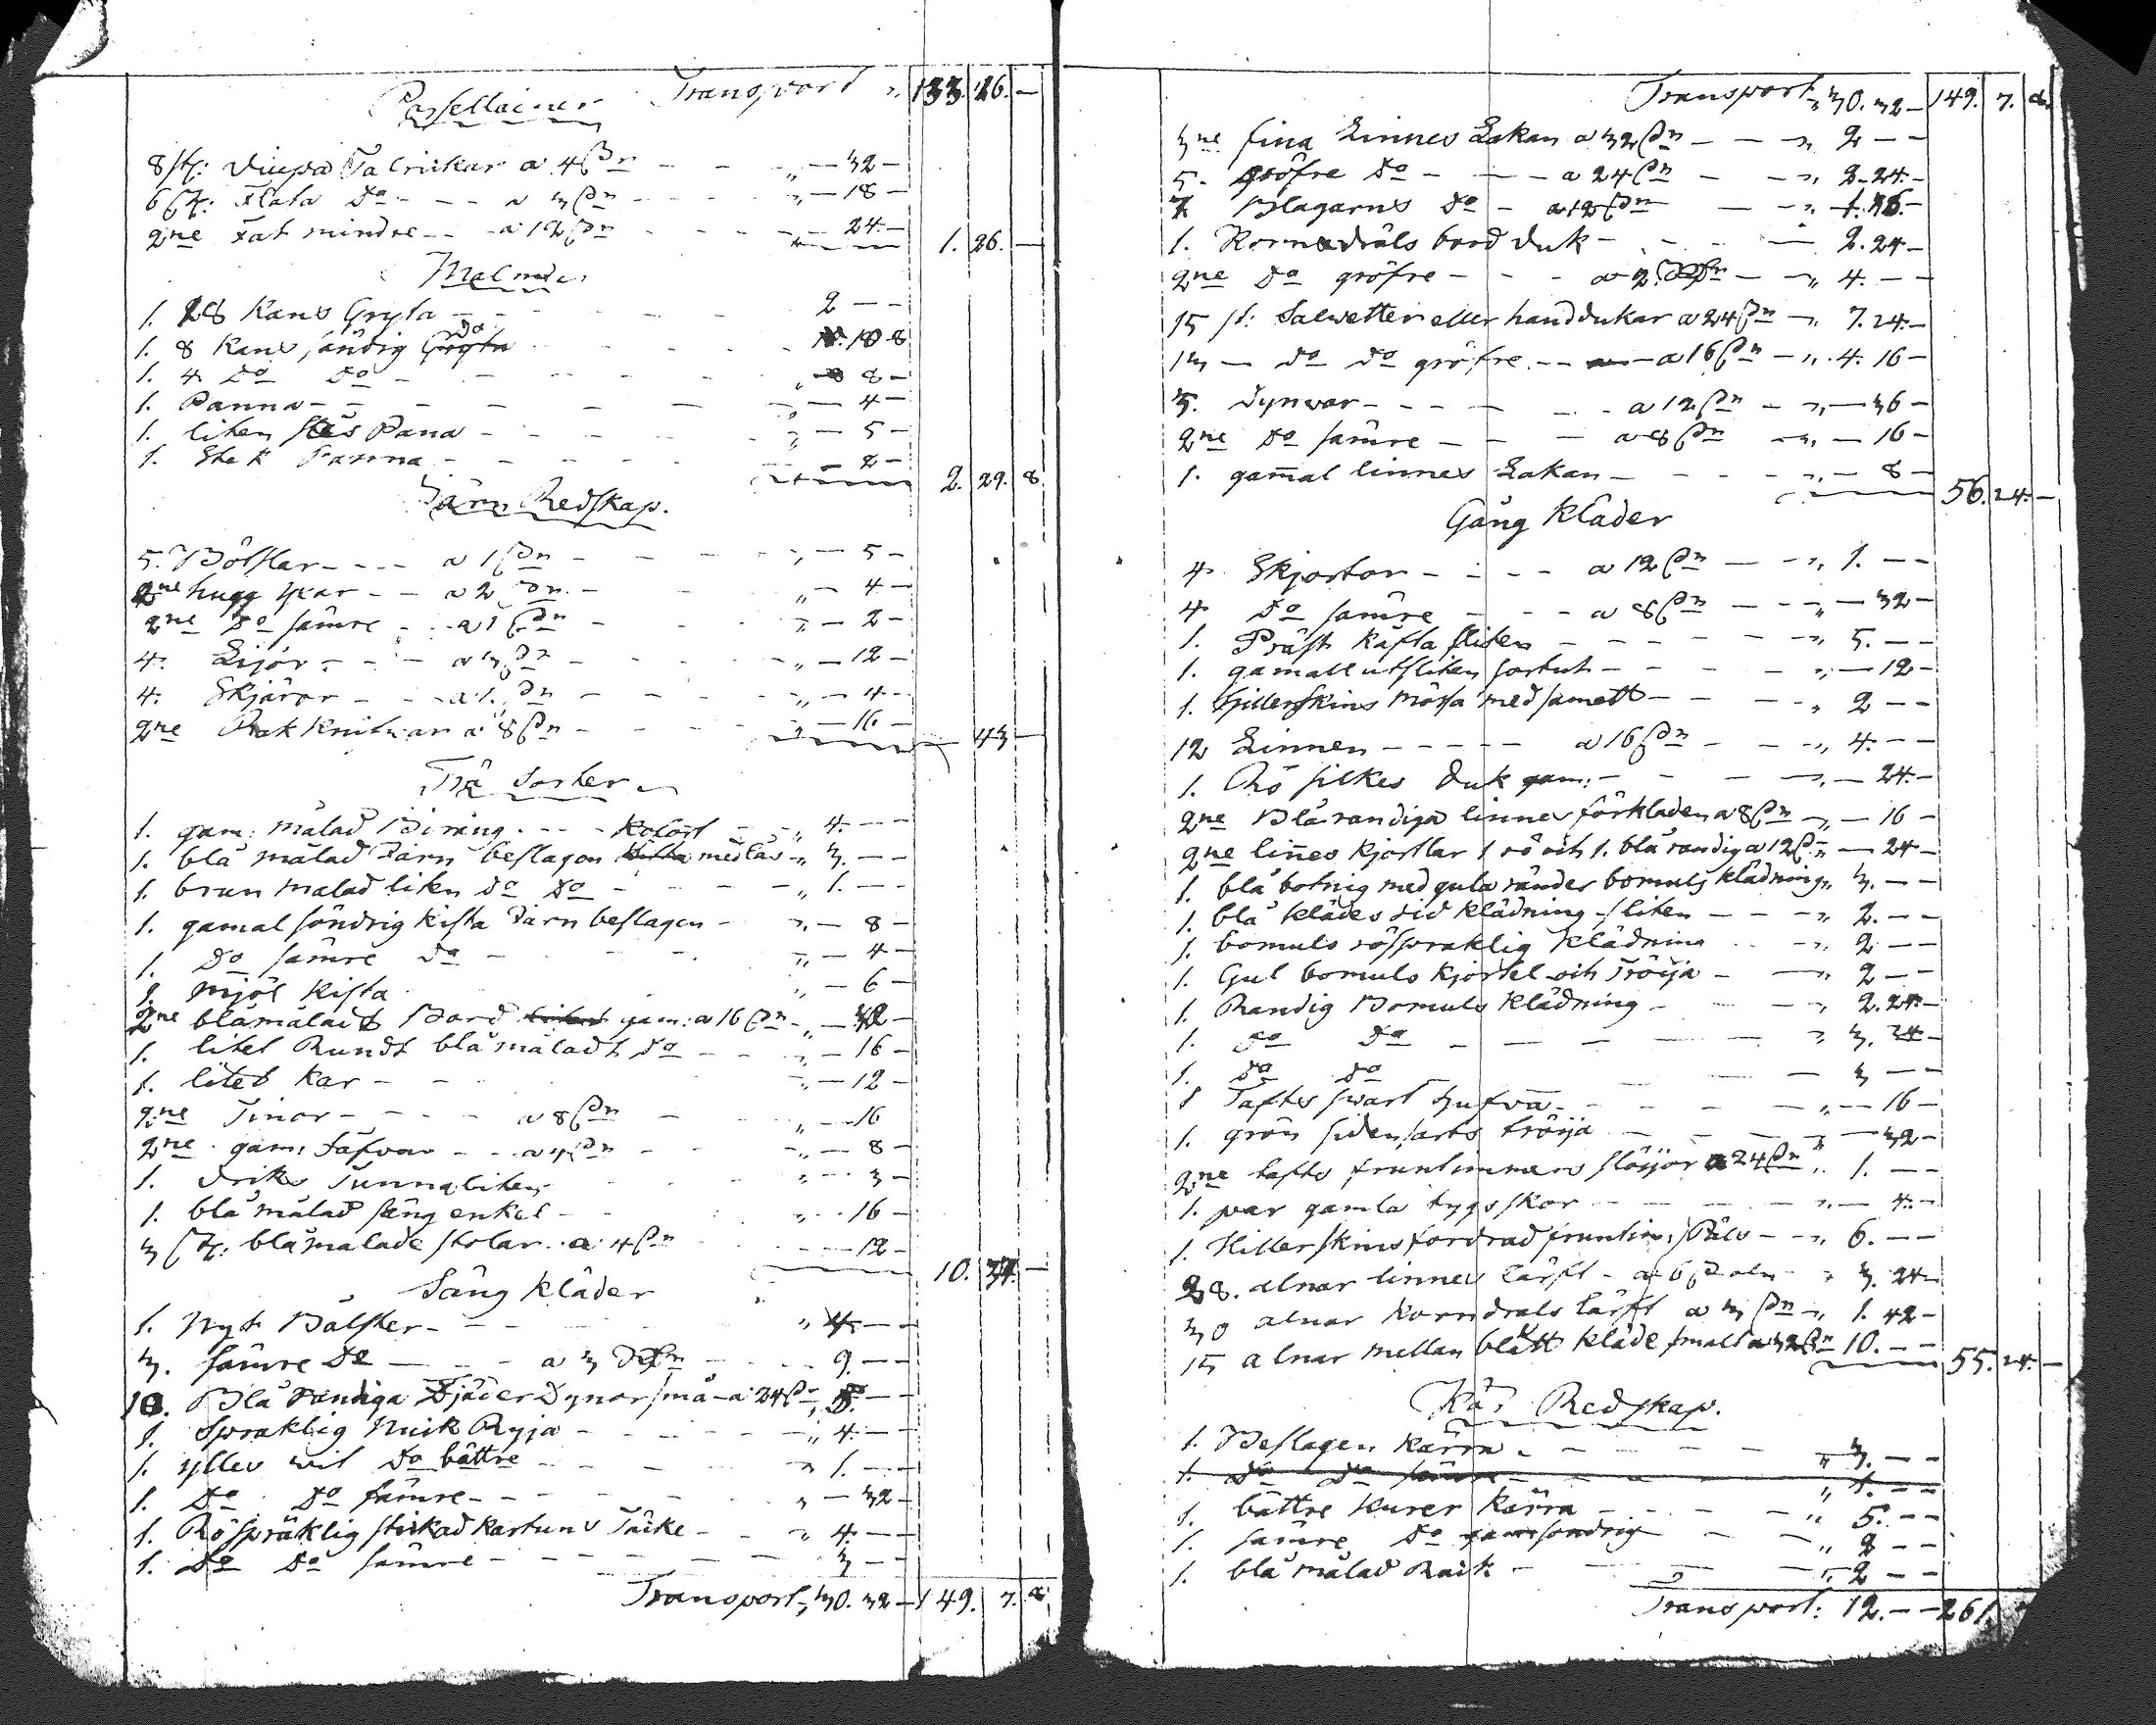 Transport „ 133. 26. —
Porsellainer
8 st: diupa Talrickar a 4 sdn — — „ — 32 —
6 st: Flata do — — a 3 sdn — — „ — 18 —
2ne Fat mindre — — a 12 sdn — — 24. — 1. 26. —
Malm
1. 28 Kans Gryta — — 2 — —
1. 8 Kans söndig do — — 10 8
1. 4 do do — — „ 8 —
1. Panna — — „ — 4 —
1. liten Pana — — „ — 5 —
1. Stek Panna — — — 2 — 2. 29. 8.
Järn Redskap.
5. — — a 1 sdn — — „ — 5 —
2ne hugg yxar — — a 2 sdn — „ — 4 —
2ne do sämre — a 1 sdn — „ — 2 —
4. Lijor — — a 3 sdn — — „ — 12 —
4. Skjäror — — a 1. sdn — — „ — 4 —
2ne Rak Knifwar a 8 sdn — — „ — 16 — 43 —
Trä Sorter
1. gam: målad — — „ 4. — —
1. blå målad Järn beslagen med lås „ 3. — —
1. brun målad liten do do — — „ 1. — —
1. gamal söndrig kista Järn beslagen — „ — 8 —
1. do sämre do — — „ — 4 —
1. mjöl kista „ — 6 —
2ne blåmåladt Bord gam: a 16 sdn „ — 32 —
1. litet Rundt blåmåladt do — — „ — 16 —
1. litet Kar — — „ — 12 —
2ne Tinor — — a 8 sdn — „ — 16
2ne gam: — — a 4 sdn — — „ — 8 —
1. driks Tunna liten — — „ — 3 —
1. blå målad säng enkel — „ — 16 —
3 st: blåmålade stolar a 4 sdn — 12 — 10. 37. —
Säng kläder
1. Nytt Bålster — — „ 4. — —
3. sämre do — — a 3 — — 9. — —
10. Blå randiga Fjäder Dynor små a 24 s „ 5. — —
1. Spraklig Ryja — — „ 4. — —
1. ylles wit do bättre — — „ 1. — —
1. do do sämre — — „ — 32 —
1. Röspräklig stickad kartuns Täcke — „ 4. — —
1. do do sämre — — 3 — —
Transport „ 30. 32 — 149. 7. 8
Transport „ 30. 32 — 149. 7. 8.
3ne fina Linnes Lakan a 32 sdn — — „ 2 — —
5. gröfre do — — a 24 sdn — „ 2. 24. —
7 Blagarns do — a 12 sdn — „ 1. 36. —
1. Korndräls bord duk — — 2. 24 —
2ne do gröfre — — a 2 — „ 4. — —
15 st: Salwetter eller handdukar a 24 sdn — „ 7. 24. —
13 — do do gröfre — — a 16 sdn — „ 4. 16 —
3. dynwar — — a 12 sdn — „ — 36 —
2ne do sämre — — a 8 sdn — „ — 16 —
1. gammal linnes Lakan — — „ — 8 — 56. 24. —
Gång kläder
4 Skjortor — — a 12 sdn — „ 1. — —
4 do sämre — — a 8 sdn — „ — 32 —
1. Präst käfta sliten — — „ 5. — —
1. gamall utsliten sortut — — „ — 12 —
1. Hillerskins mössa med samett — — „ 2 — —
12 Linnen — — a 16 sdn — — „ 4. — —
1. Rö silkes duk gam: — — „ — 24. —
2ne Blårandiga linnes förkläden a 8 sdn „ — 16 —
2ne linnes kjortlar 1 rö och 1. blå randig a 12 s „ — 24 —
1. blå botnig med gula ränder bomuls klädning „ 3. — —
1. blå klädes sid klädning sliten — — „ 2. — —
1. bomuls röspraklig klädning — „ 2 — —
1. Gul bomuls kjortel och Tröija — „ 2 — —
1. Randig Bomuls klädning — — „ 2. 24. —
1. do do — — „ 3. 24 —
1. do do — — 3 — —
1 Tafts swart hufva — — „ — 16 —
1. grön sidensarts tröija — — — 32 —
2ne tafts fruntimmers slöijor a 24 sdn „ 1. — —
1. par gamla tygs skor — — „ — 4. —
1. Hillerskins fordrad fruntim: Päls — „ 6. — —
28. alnar linnes lärft — a 6 s aln „ 3. 24 —
30 alnar korndräls lärft a 3 sdn „ 1. 42 —
15 alnar mellan blått kläde smalt a 32 sdn 10. — — 55. 24. —
Kör Redskap.
1. Beslagen kärra — — „ 3. — —
1. do do sämre — „ 1. — —
1. bättre kärra — — „ 5. — —
1 sämre do söndrig — „ 2 — —
1. blå målad — — „ 2 — —
Transport: 12. — — 261.